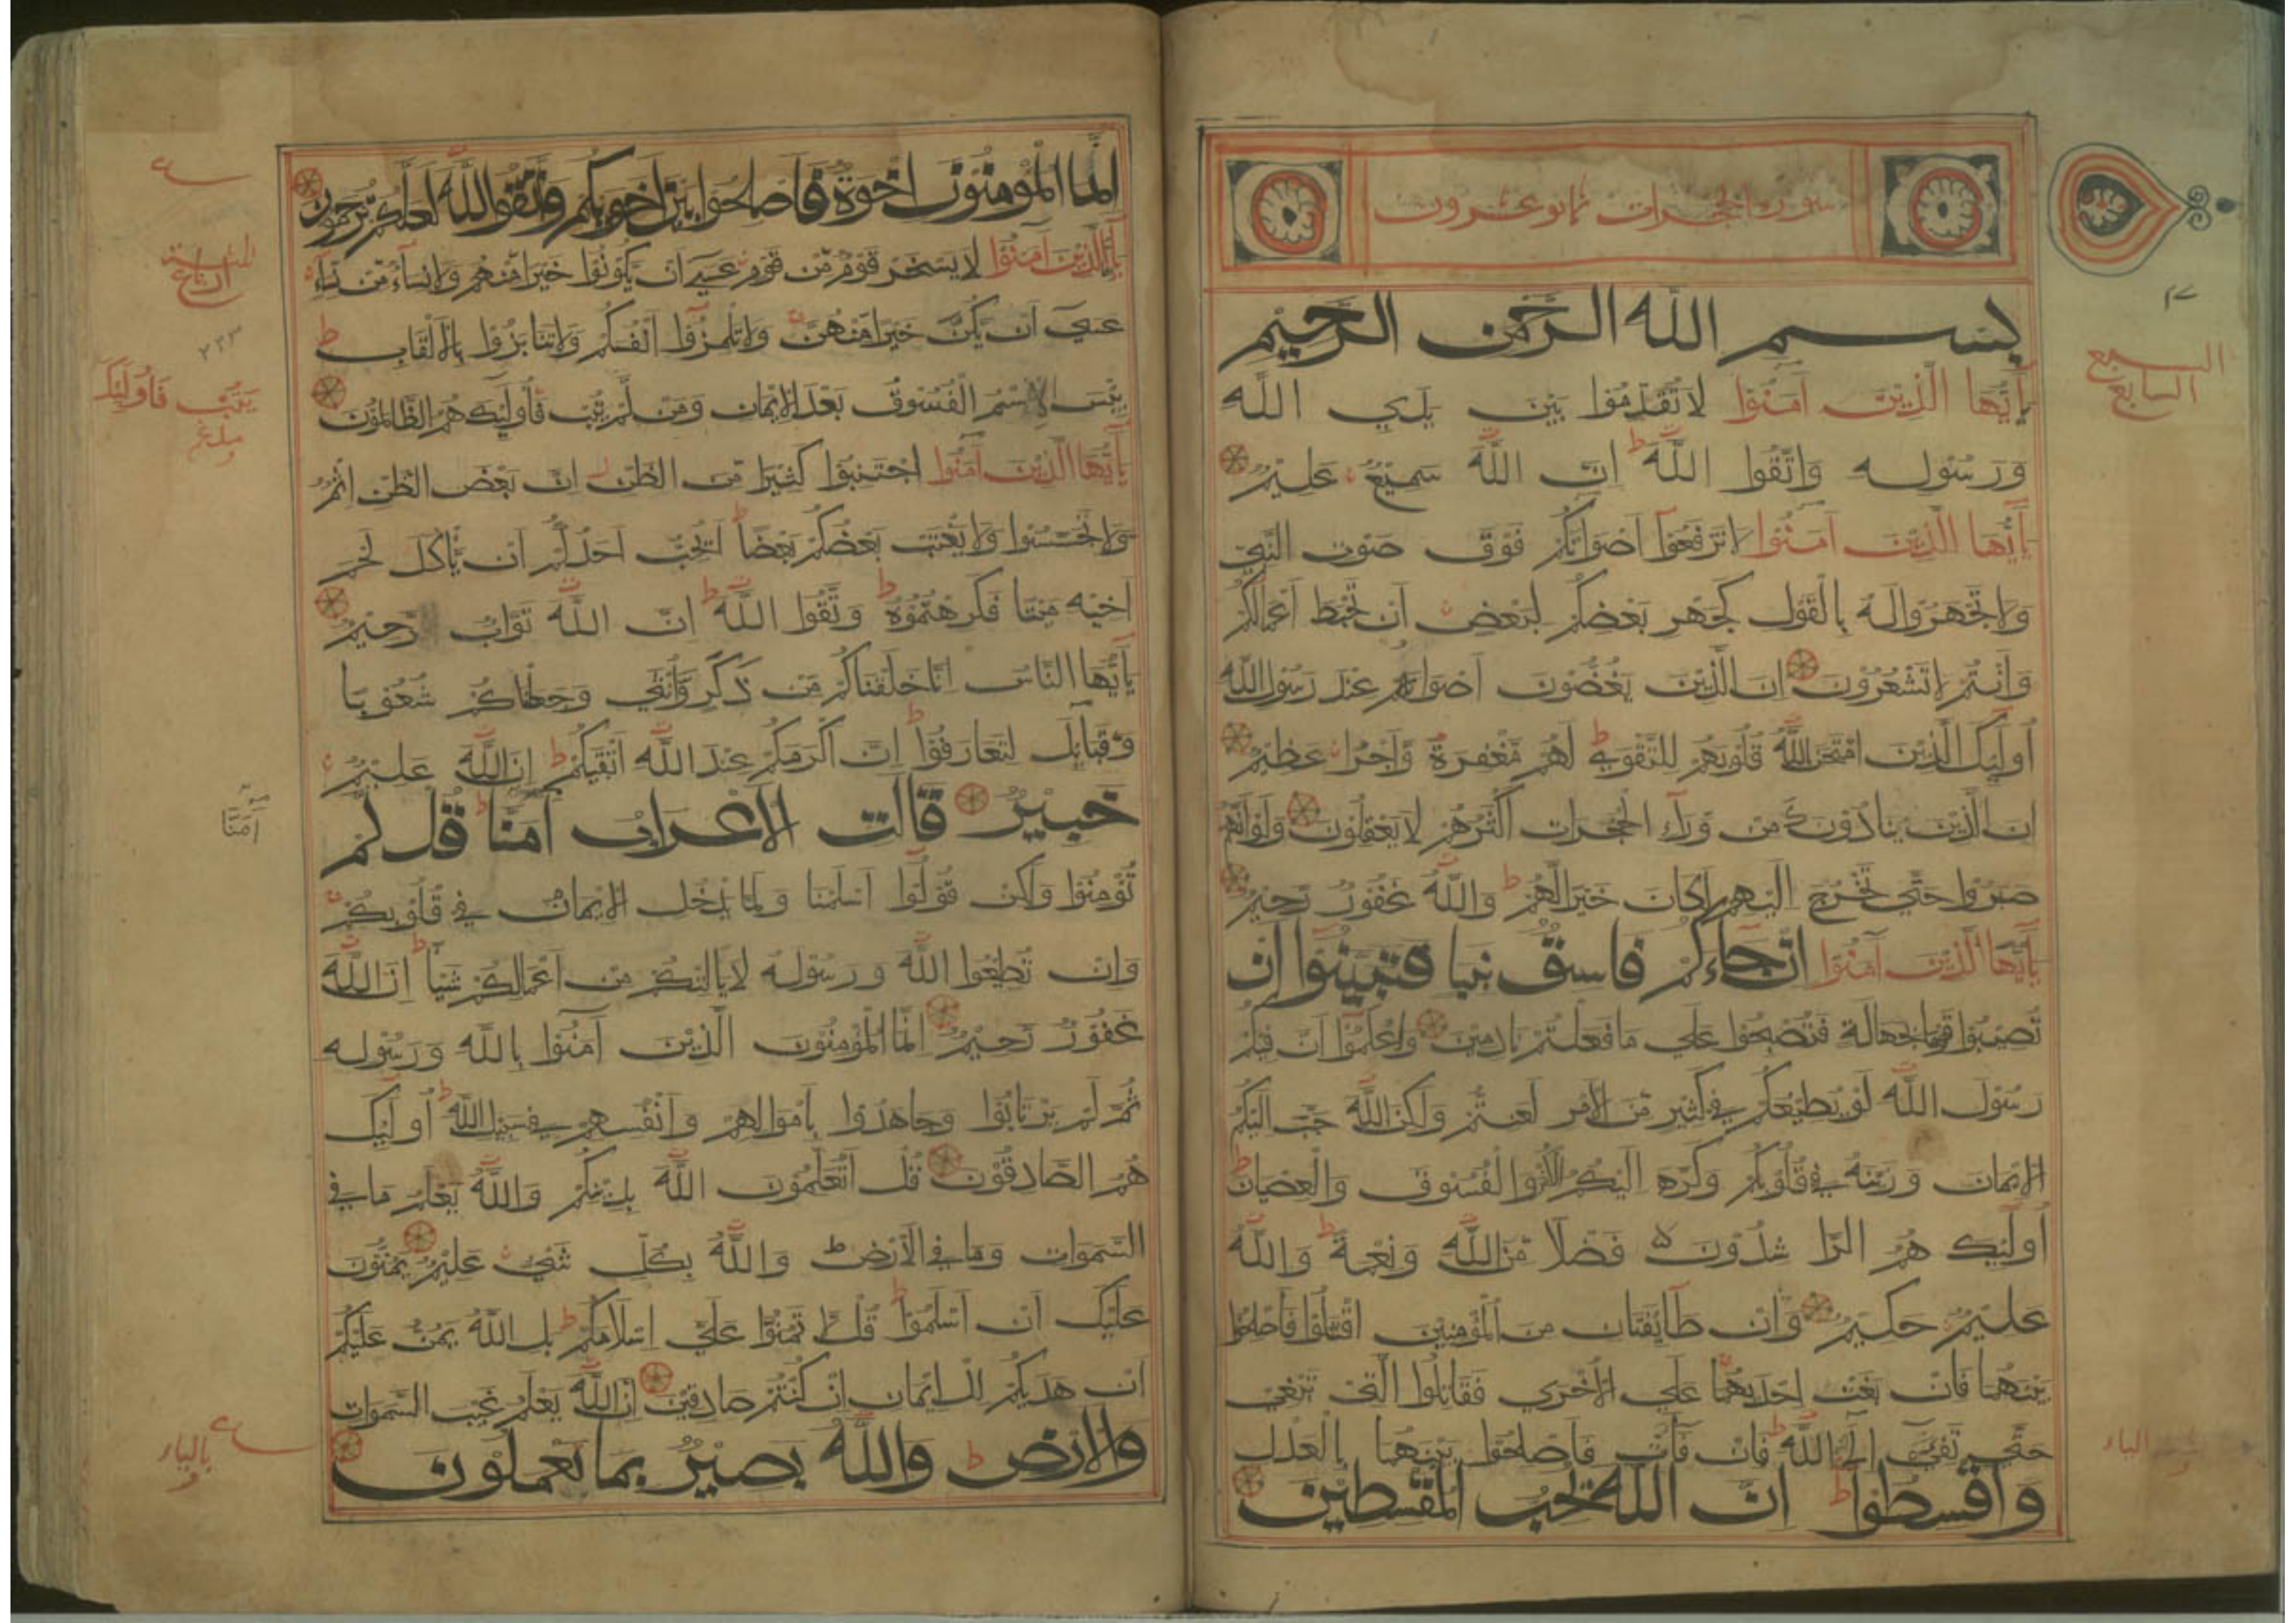 سورة الحجرات ثمانو عشرون
بسم الله الرحمن الرحيم
السبع
السابع
يأيها الذين آمنوا لا تقدموا بين يدي الله
ورسوله واتقوا الله ان الله سميع عليم
يأيها الذين آمنوا لا ترفعوا اصواتكم فوق صوت النبي
ولا تجهروا له بالقول كجهر بعضكم لبعض ان تحبط اعمالكم
وانتم لا تشعرون ان الذين يغضون اصواتهم عند رسول الله
اوليك الذين امتحن الله قلوبهم للتقوي لهم مغفرة واجر عظيم
ان الذين ينادونك من ورآء الحجرات اكثرهم لا يعقلون ولو انهم
صبروا حتي تخرج اليهم لكان خيرا لهم والله غفور رحيم
يأيها الذين آمنوا ان جآءكم فاسق بنبا فتبينوا ان
تصيبوا قوما بجهالة فتصبحوا علي ما فعلتم نادمين واعلموا ان فيكم
رسول الله لو يطيعكم في كثير من الامر لعنتم ولكن الله حبب اليكم
الايمان وزينه في قلوبكم وكره اليكم الكفر والفسوق والعصيان
اوليك هم الراشدون فضلا من الله ونعمة والله
عليم حكيم وان طآيفتان من المؤمنين اقتتلوا فاصلحوا
بينهما فان بغت احديهما علي الاخري فقاتلوا التي تبغي
حتي تفيء الي الله فان فآءت فاصلحوا بينهما بالعدل
واقسطوا ان الله يحب المقسطين
بالياء
انما المؤمنون اخوة فاصلحوا بين اخويكم وتقوا الله لعلكم ترحمون
يأيها الذين آمنوا لا يسخر قوم من قوم عسي ان يكونوا خيرا منهم ولا نسآء من نسآء
عسي ان يكن خيرا منهن ولا تلمزوا انفسكم ولا تنابزوا بالالقاب
٢٢٣
بيس الاسم الفسوق بعد الايمان ومن لم يتب فاوليك هم الظالمون
يتب فاوليك
يأيها الذين آمنوا اجتنبوا كثيرا من الظن ان بعض الظن اثم
ولا تجسسوا ولا يغتب بعضكم بعضا ايحب احدكم ان يأكل لحم
اخيه ميتا فكرهتموه وتقوا الله ان الله تواب رحيم
يأيها الناس انا خلقناكم من ذكر وانثي وجعلناكم شعوبا
وقبآيل لتعارفوا ان اكرمكم عند الله اتقيكم ان الله عليم
خبير قالت الاعراب آمنا قل لم
آمنا
تؤمنوا ولكن قولوا اسلمنا ولما يدخل الايمان في قلوبكم
وان تطيعوا الله ورسوله لا يالتكم من اعمالكم شيا ان الله
غفور رحيم انما المؤمنون الذين آمنوا بالله ورسوله
ثم لم يرتابوا وجاهدوا باموالهم وانفسهم في سبيل الله اوليك
هم الصادقون قل اتعلمون الله بدينكم والله يعلم ما في
السموات وما في الارض والله بكل شيء عليم يمنون
عليك ان اسلموا قل لا تمنوا علي اسلامكم بل الله يمن عليكم
ان هديكم للايمان ان كنتم صادقين ان الله يعلم غيب السموات
والارض والله بصير بما تعملون
بالياء